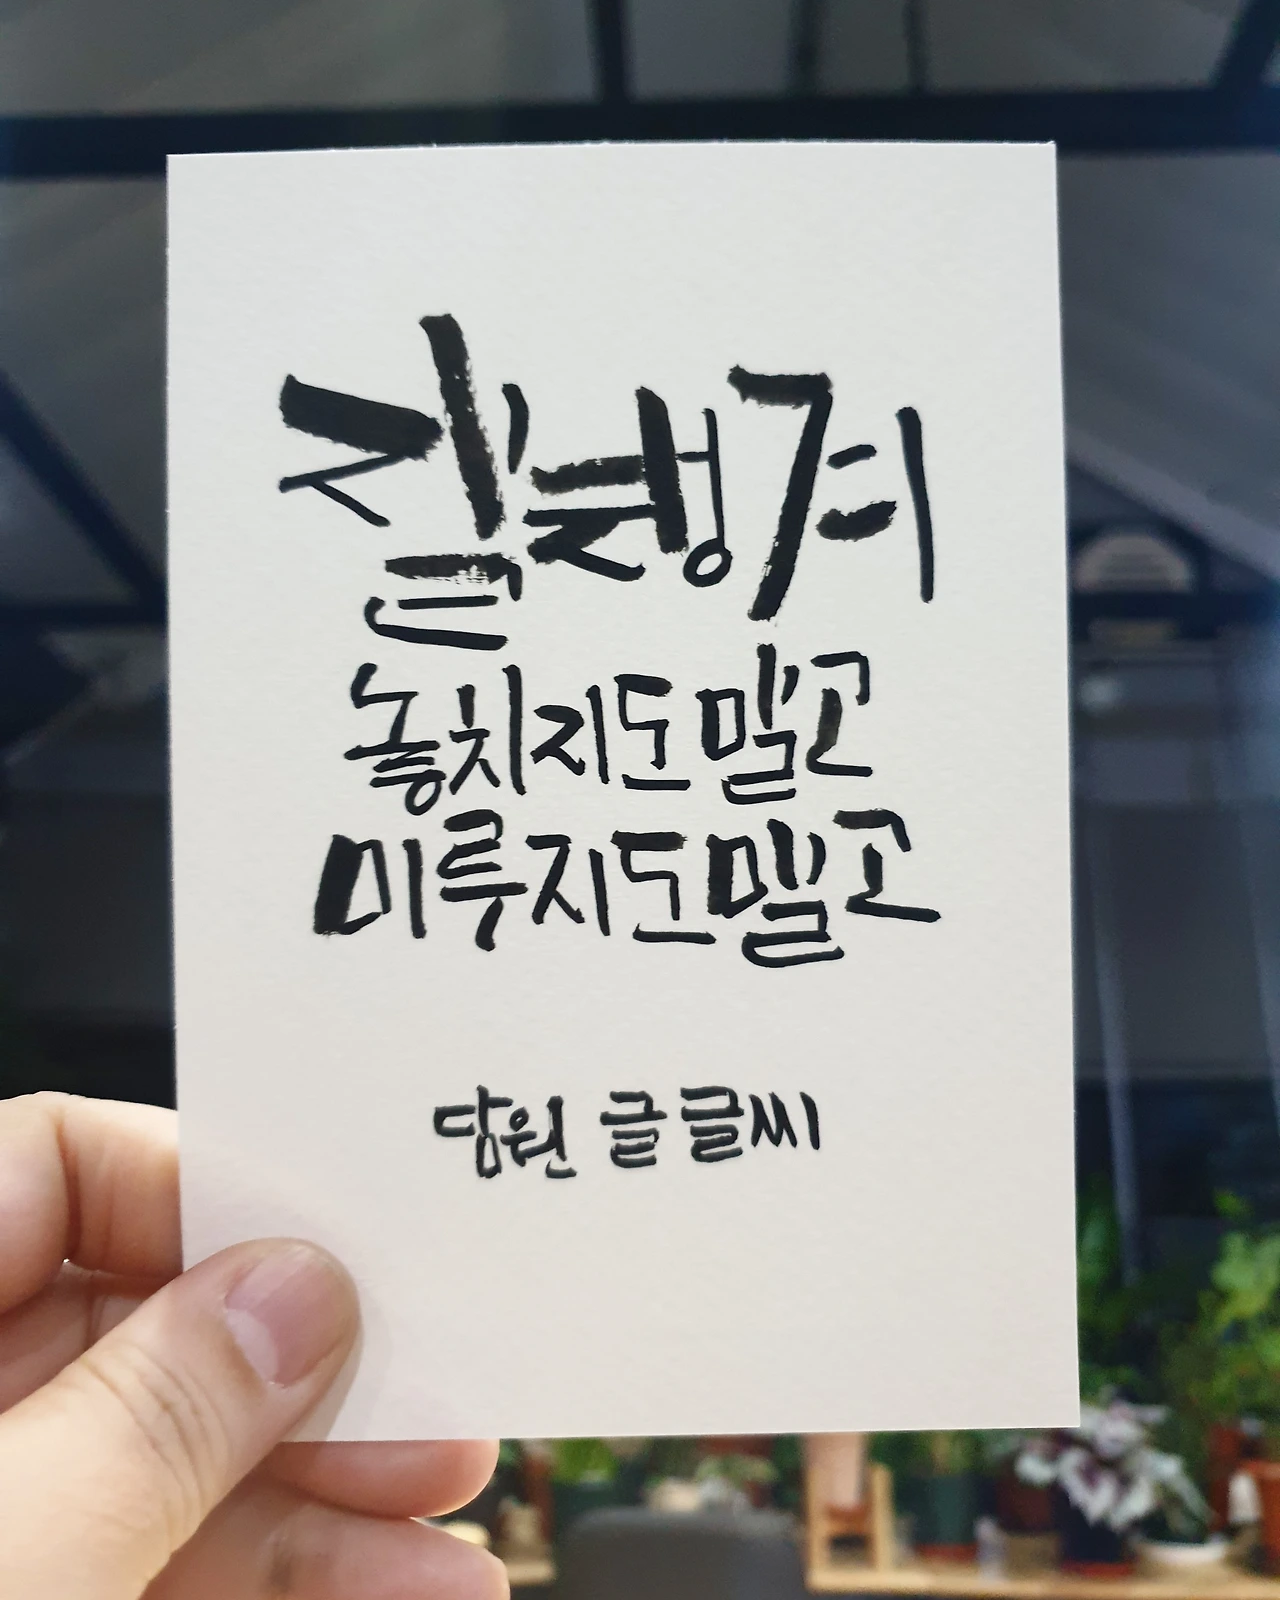 잘 챙겨
놓치지도 말고
미루지도 말고
담원 글글씨